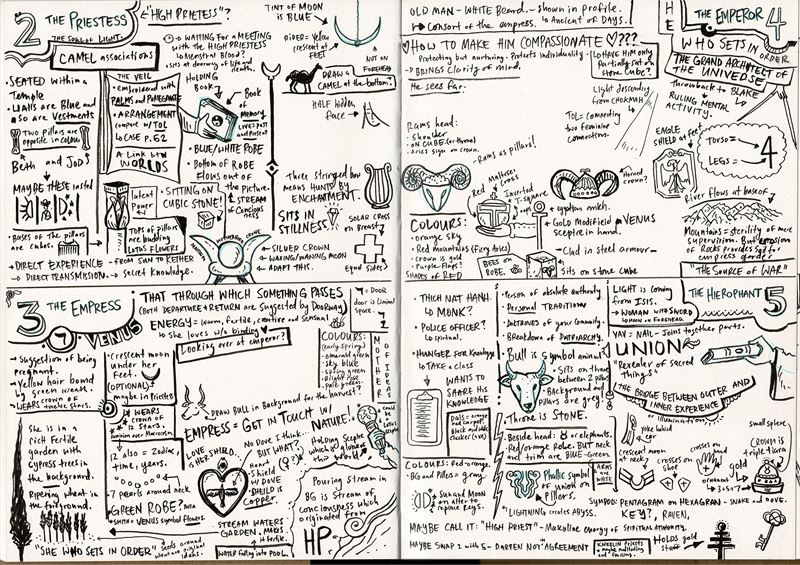 2 THE PRIESTESS
THE SOULS OF LIGHT.
"HIGH PRIETESS"?
CAMEL associations
WAITING FOR A MEETING
WITH THE HIGH PRIESTESS
Menstral Blood?
SITS at doorway of life and death.
TINT OF MOON
is BLUE
RIDER- Yellow
crescent at
FEET
NOT ON
FOREHEAD
DRAW A
CAMEL at the bottom?
SEATED within a
Temple
Walls are Blue and
so are Vestments
THE VEIL
embroidered with
PALMS and POMEGRANATE
ARRANGEMENT
compare w/ TOL
CASE p. 62
A Link btw
WORLDS
HOLDING
BOOK
Book of
Memory.
LIVES past
and present
BLUE/WHITE ROBE
Bottom of ROBE
flows out of
the Picture.
STREAM
of Conscious
ness
HALF hidden
face
TWO Pillars are
opposite in colour
Beth and JOD
MAYBE THESE instead
latent
Power
SITTING ON
CUBIC STONE!
Three stringed bow
means HUNTS by
ENCHANTMENT.
SITS IN
STILLNESS
Bases of The pillars
are cubes.
Tops of pillars
are budding
LOTUS FLOWERS
SOLAR CROSS
on Breast
equal sides
DIRECT EXPERIENCE
DIRECT TRANSMISSION.
FROM SUN TO KETHER
secret Knowledge.
SILVER CROWN
WAXING/WANING MOON
ADAPT THIS.
3 THE EMPRESS
VENUS
THAT THROUGH WHICH SOMETHING PASSES
(BOTH DEPARTURE & RETURN are SUGGESTED by DOORWAY)
ENERGY = warm, fertile, creative and sensual
she loves w/o binding
Looking over at emperor?
= DOOR
door is liminal
space.
MOTHER OF IDEAS
COLOURS:
(early spring)
emerald green
sky blue
spring green
Bright rose
pale green.
Suggestion of being
pregnant.
Yellow hair bound
by green wreath.
WEARS crown of twelve stars.
Crescent moon
under her
feet.
(OPTIONAL)
maybe in Priestess
WEARS
crown of
12 STARS.
Dominion over Macrocosm
12 also = Zodiac,
time, years.
7 pearls around neck
GREEN ROBE?
SMITH = VENUS symbol Flowers.
DRAW BULL in Background for the harvest?
EMPRESS = GET IN TOUCH w/
NATURE!
LOVE SHIELD.
is HER SHIELD.
NO DOVE I think...
BUT WHAT?
Heart
shield
w/ DOVE
SHIELD is
COPPER
Holding Scepter
which is planted
this WORLD.
She is in
a rich Fertile
garden with
cypress trees in
the background.
Ripening wheat in
the foreground.
"SHE WHO SETS IN ORDER"
seeds around
STREAM WATERS
GARDEN. MAKES
it fertile.
WATER FALLING INTO POOL.
Pouring Stream in
BG is Stream of
conciousness which
originated from
HP.
OLD MAN - WHITE BEARD. - shown in profile.
Consort of the empress. Ancient of Days.
HOW TO MAKE HIM COMPASSIONATE ???
Protecting but nurturing. Protects individuality.
BRINGS Clarity of mind.
He sees far.
HAVE HIM ONLY
Partially sat on
Stone Cube?
Light descending
from CHOKMAH
TOL = connecting
two feminine
connections.
THE
THE EMPEROR 4
WHO SETS IN ORDER
THE GRAND ARCHITECT OF
THE UNIVERSE
Throwback to BLAKE
RULING MENTAL
ACTIVITY.
EAGLE
SHIELD at feet
TORSO =
LEGS =
4
Rams head:
shoulder
ON CUBE (or throne)
Aries sign on crown.
Rams as pillars!
Horned
crown?
River flows at base of
Mountains = sterility of mere
supervision. But erosion
of Rocks provides soil for
empress garden.
"THE SOURCE OF WAR"
COLOURS:
Orange sky
Red mountains (fiery Aries)
Crown is gold
Purple-flaps
SHADES of RED
Red
Maltese
cross
Inverted
T-square
egyptian ankh.
Gold Modified VENUS
sceptre in hand.
Clad in steel armour
BEES on
ROBE.
Sits on stone cube
THICH NAT HANH.
to MONK?
POLICE OFFICER?
to spiritual.
HUNGER FOR Knowledge
TAKE a class
WANTS to
SHARE HIS
KNOWLEDGE
Person of absolute authority
Personal TRADITIONS
DOCTRINES of your community.
Breakdown of PATRIARCHY.
Bull is symbol animal
SITS ON throne
between 2 pillars
Background and
Pillars are grey!
Throne is STONE.
Beside head: or elephants.
Red/orange robe. BUT neck
and trim are BLUE-GREEN
Phallic symbol
of union on
Pillars.
LIGHTNING creates ABYSS.
COLOURS: Red-orange.
BG and Pillars = gray.
Sun and Moon
on altar to
replace keys
MAYBE CALL IT: "HIGH PRIEST" - Masculine energy of SPIRITUAL AUTHORITY.
MAYBE SWAP 2 with 5
THE HIEROPHANT 5
LIGHT IS COMING
FROM ISIS.
WOMAN WHO SWORD
VAV = NAIL - Joins together parts.
UNION
"Revealer of sacred
Things"
THE BRIDGE BETWEEN OUTER AND
INNER EXPERIENCE
or illumination
Yoke behind
ear
crescent moon
on neck?
crosses on
shoe
crosses on
hand
small sphere
Crown is
triple tiara
ornament
gold
3+5+7
ARMS are
WHITE
SYMBOL: PENTAGRAM on HEXAGRAM - SNAKE and DOVE.
KEY?, RAVEN,
Holds gold
staff